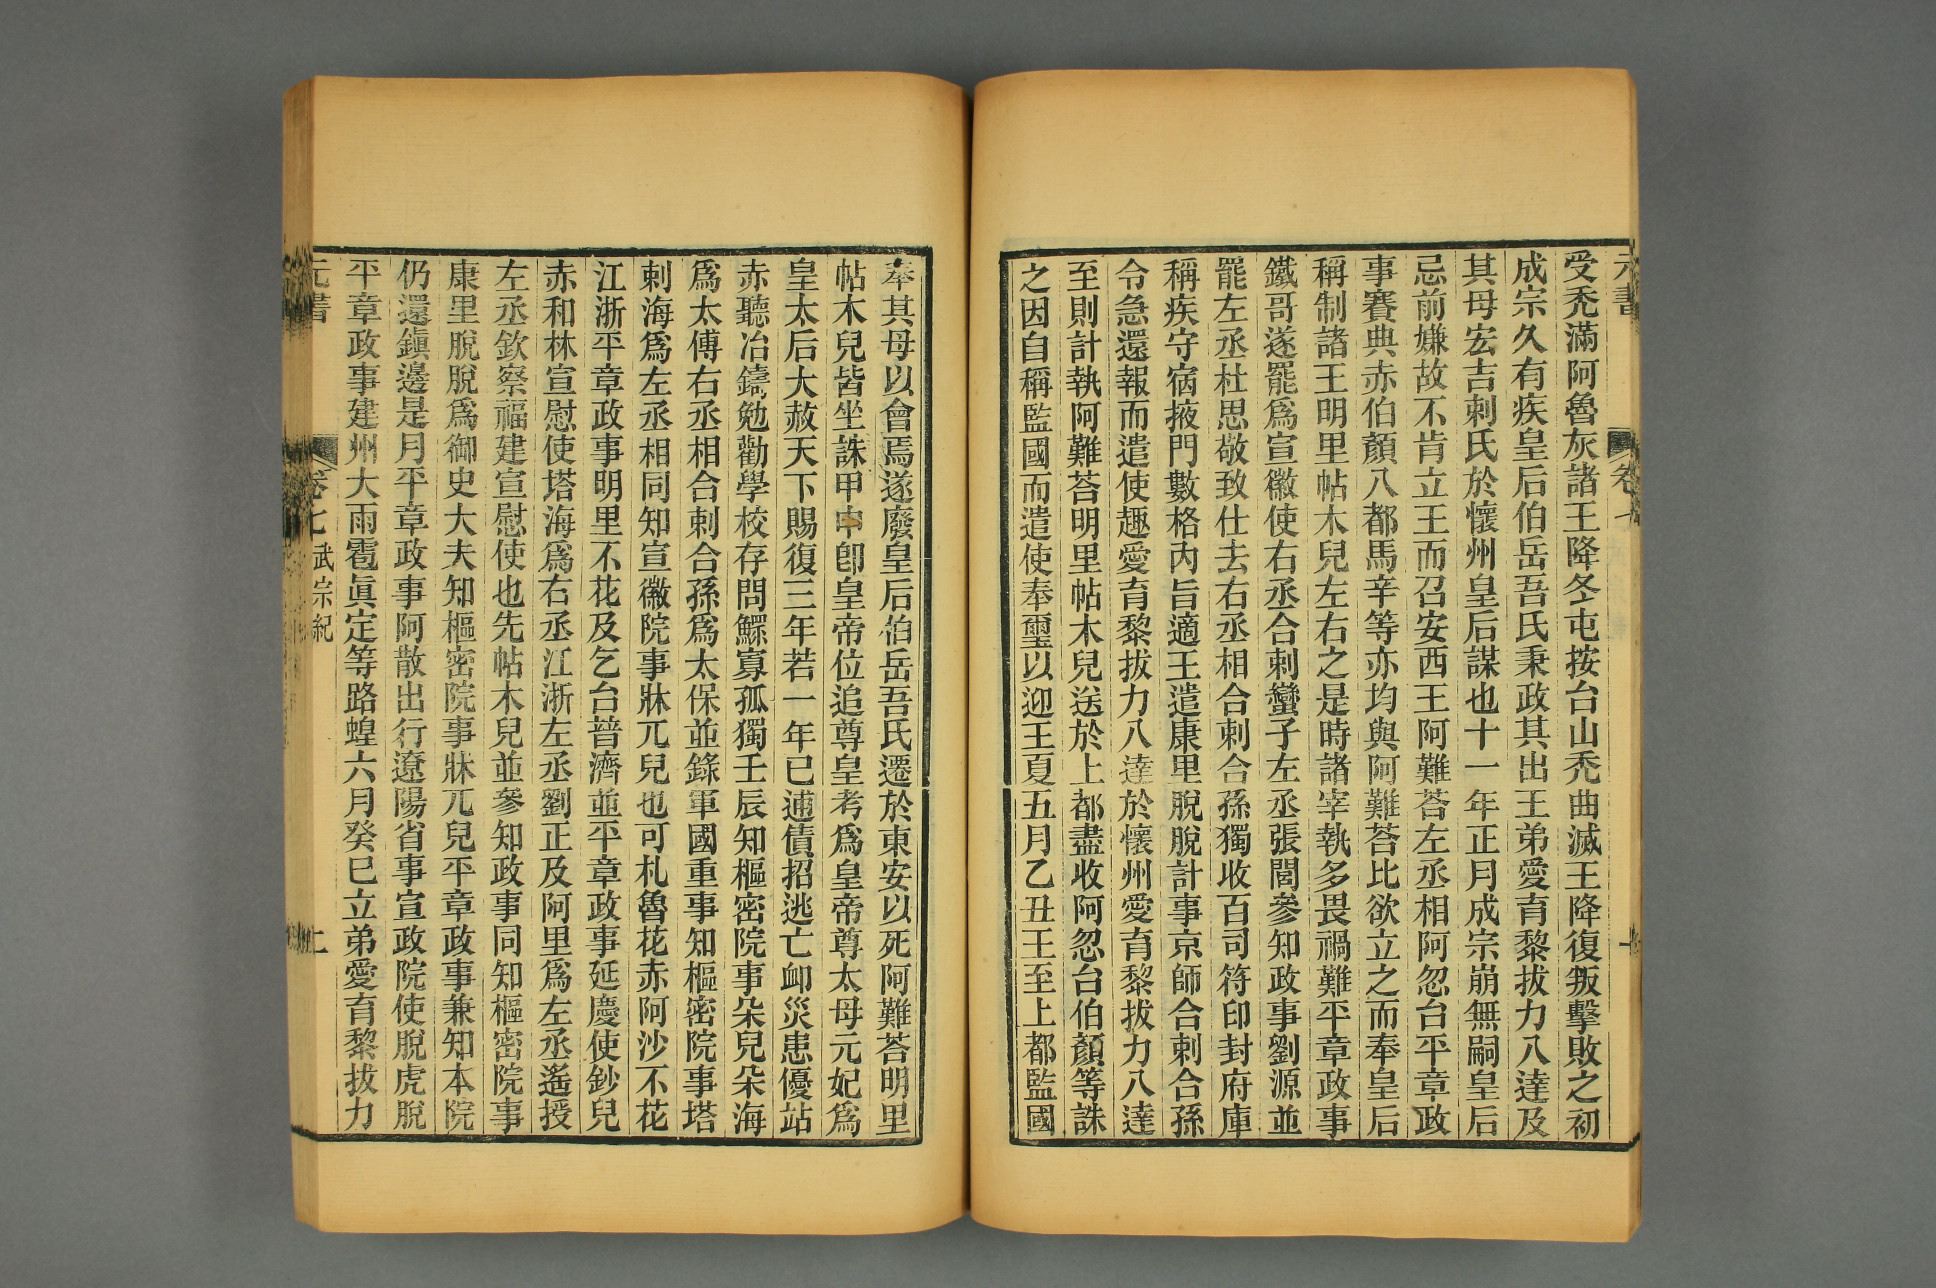 元書
卷七
受禿滿阿魯灰諸王降冬屯按台山禿曲滅王降復叛擊敗之初
成宗久有疾皇后伯岳吾氏秉政其出王弟愛育黎拔力八達及
其母宏吉剌氏於懷州皇后謀也十一年正月成宗崩無嗣皇后
忌前嫌故不肯立王而召安西王阿難荅左丞相阿忽台平章政
事賽典赤伯顏八都馬辛等亦均與阿難荅比欲立之而奉皇后
稱制諸王明里帖木兒左右之是時諸宰執多畏禍難平章政事
鐵哥遂罷爲宣徽使右丞合剌蠻子左丞張閭參知政事劉源並
罷左丞杜思敬致仕去右丞相合剌合孫獨收百司符印封府庫
稱疾守宿掖門數格內旨適王遣康里脫脫計事京師合剌合孫
令急還報而遣使趣愛育黎拔力八達於懷州愛育黎拔力八達
至則計執阿難荅明里帖木兒送於上都盡收阿忽台伯顏等誅
之因自稱監國而遣使奉璽以迎王夏五月乙丑王至上都監國
奉其母以會焉遂廢皇后伯岳吾氏遷於東安以死阿難荅明里
帖木兒皆坐誅甲申卽皇帝位追尊皇考爲皇帝尊太母元妃爲
皇太后大赦天下賜復三年若一年已逋債招逃亡卹災患優站
赤聽冶鑄勉勸學校存問鰥寡孤獨壬辰知樞密院事朵兒朵海
爲太傅右丞相合剌合孫爲太保並錄軍國重事知樞密院事塔
剌海爲左丞相同知宣徽院事牀兀兒也可札魯花赤阿沙不花
江浙平章政事明里不花及乞台普濟並平章政事延慶使鈔兒
赤和林宣慰使塔海爲右丞江浙左丞劉正及阿里爲左丞遙授
左丞欽察福建宣慰使也先帖木兒並參知政事同知樞密院事
康里脫脫爲御史大夫知樞密院事牀兀兒平章政事兼知本院
仍還鎭邊是月平章政事阿散出行遼陽省事宣政院使脫虎脫
平章政事建州大雨雹眞定等路蝗六月癸巳立弟愛育黎拔力
元書
卷七 武宗紀
二